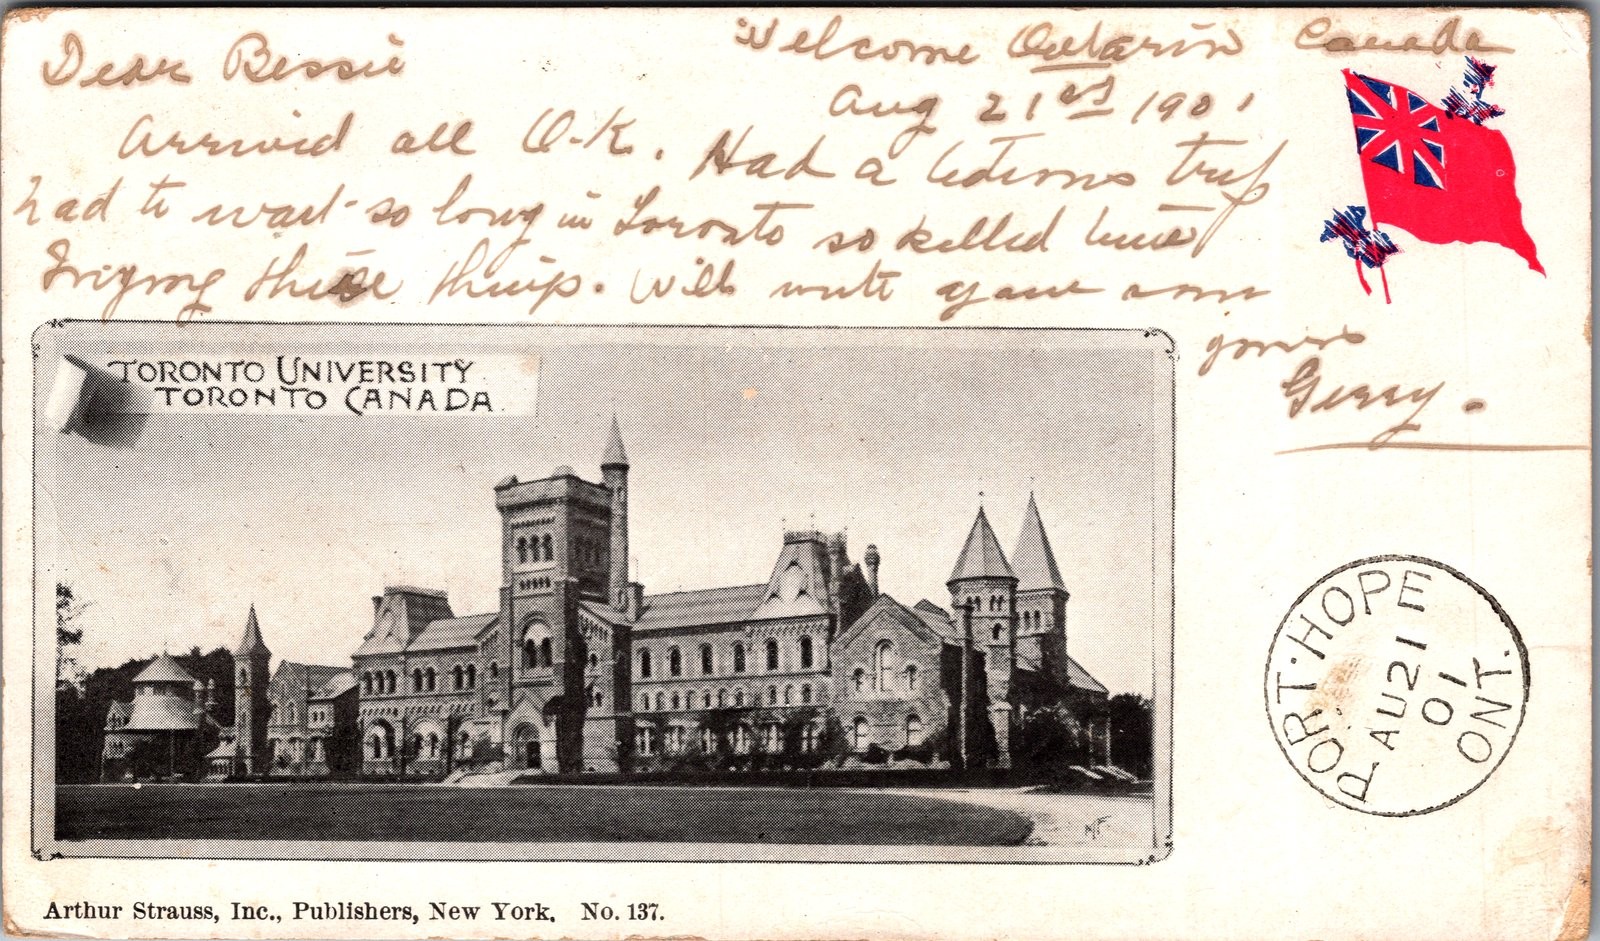 Welcome Ontario Canada
Aug 21st 1901
Dear Bessie
Arrived all O-K. Had a tedious trip
had to wait so long in Toronto so killed time
these things. Will write you soon
yours
Gerry.
TORONTO UNIVERSITY
TORONTO CANADA
PORT·HOPE
AU 21
01
ONT.
Arthur Strauss, Inc., Publishers, New York. No. 137.